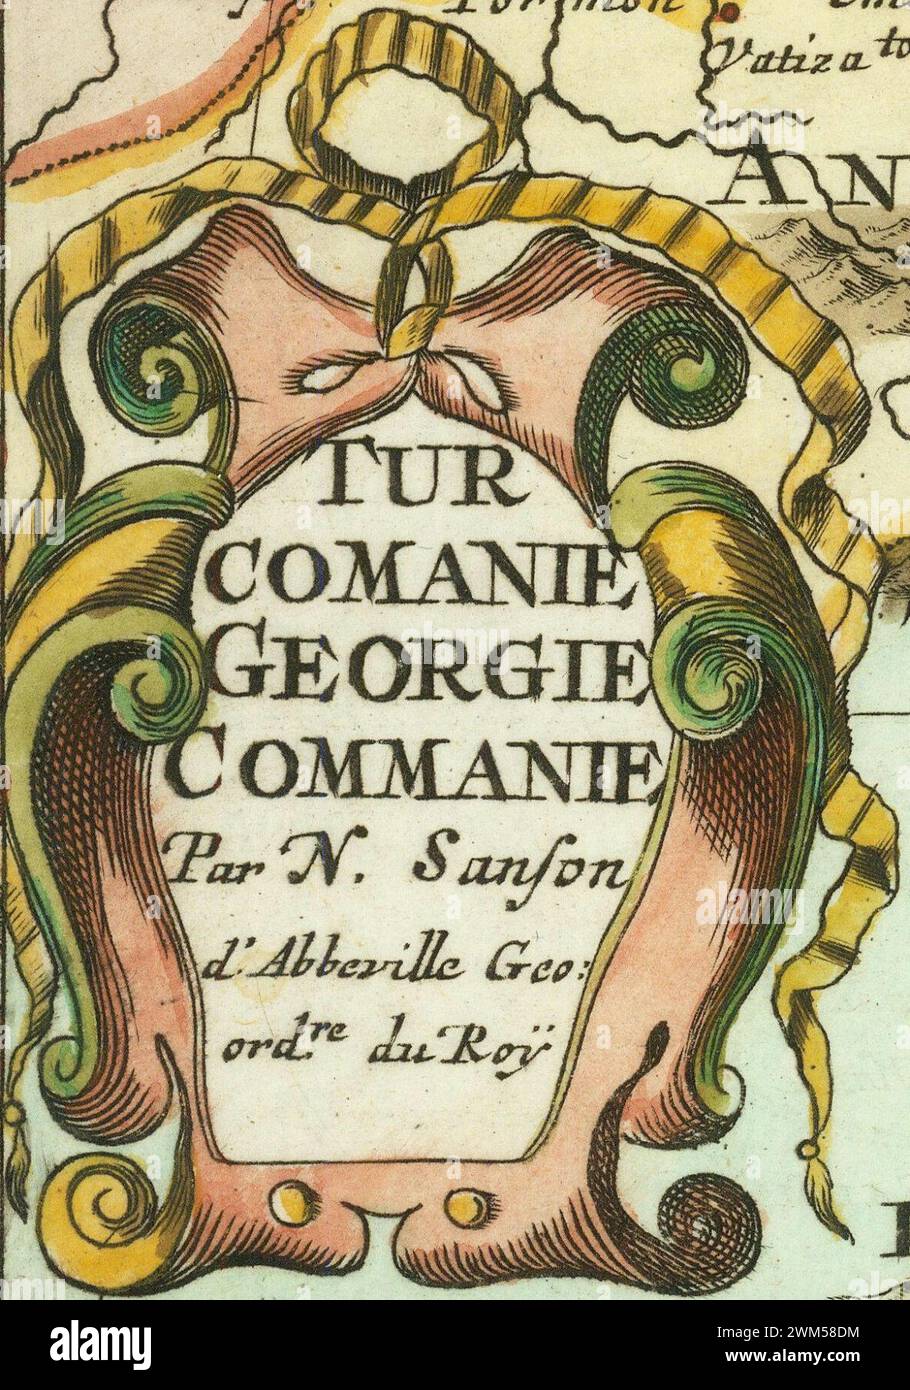 Vatiza to
AN
TUR
COMANIE
GEORGIE
COMMANIE
Par N. Sanſon
d'Abbeville Geo:
ord.re du Roÿ
alamy
Image ID: 2WM58DM
www.alamy.com